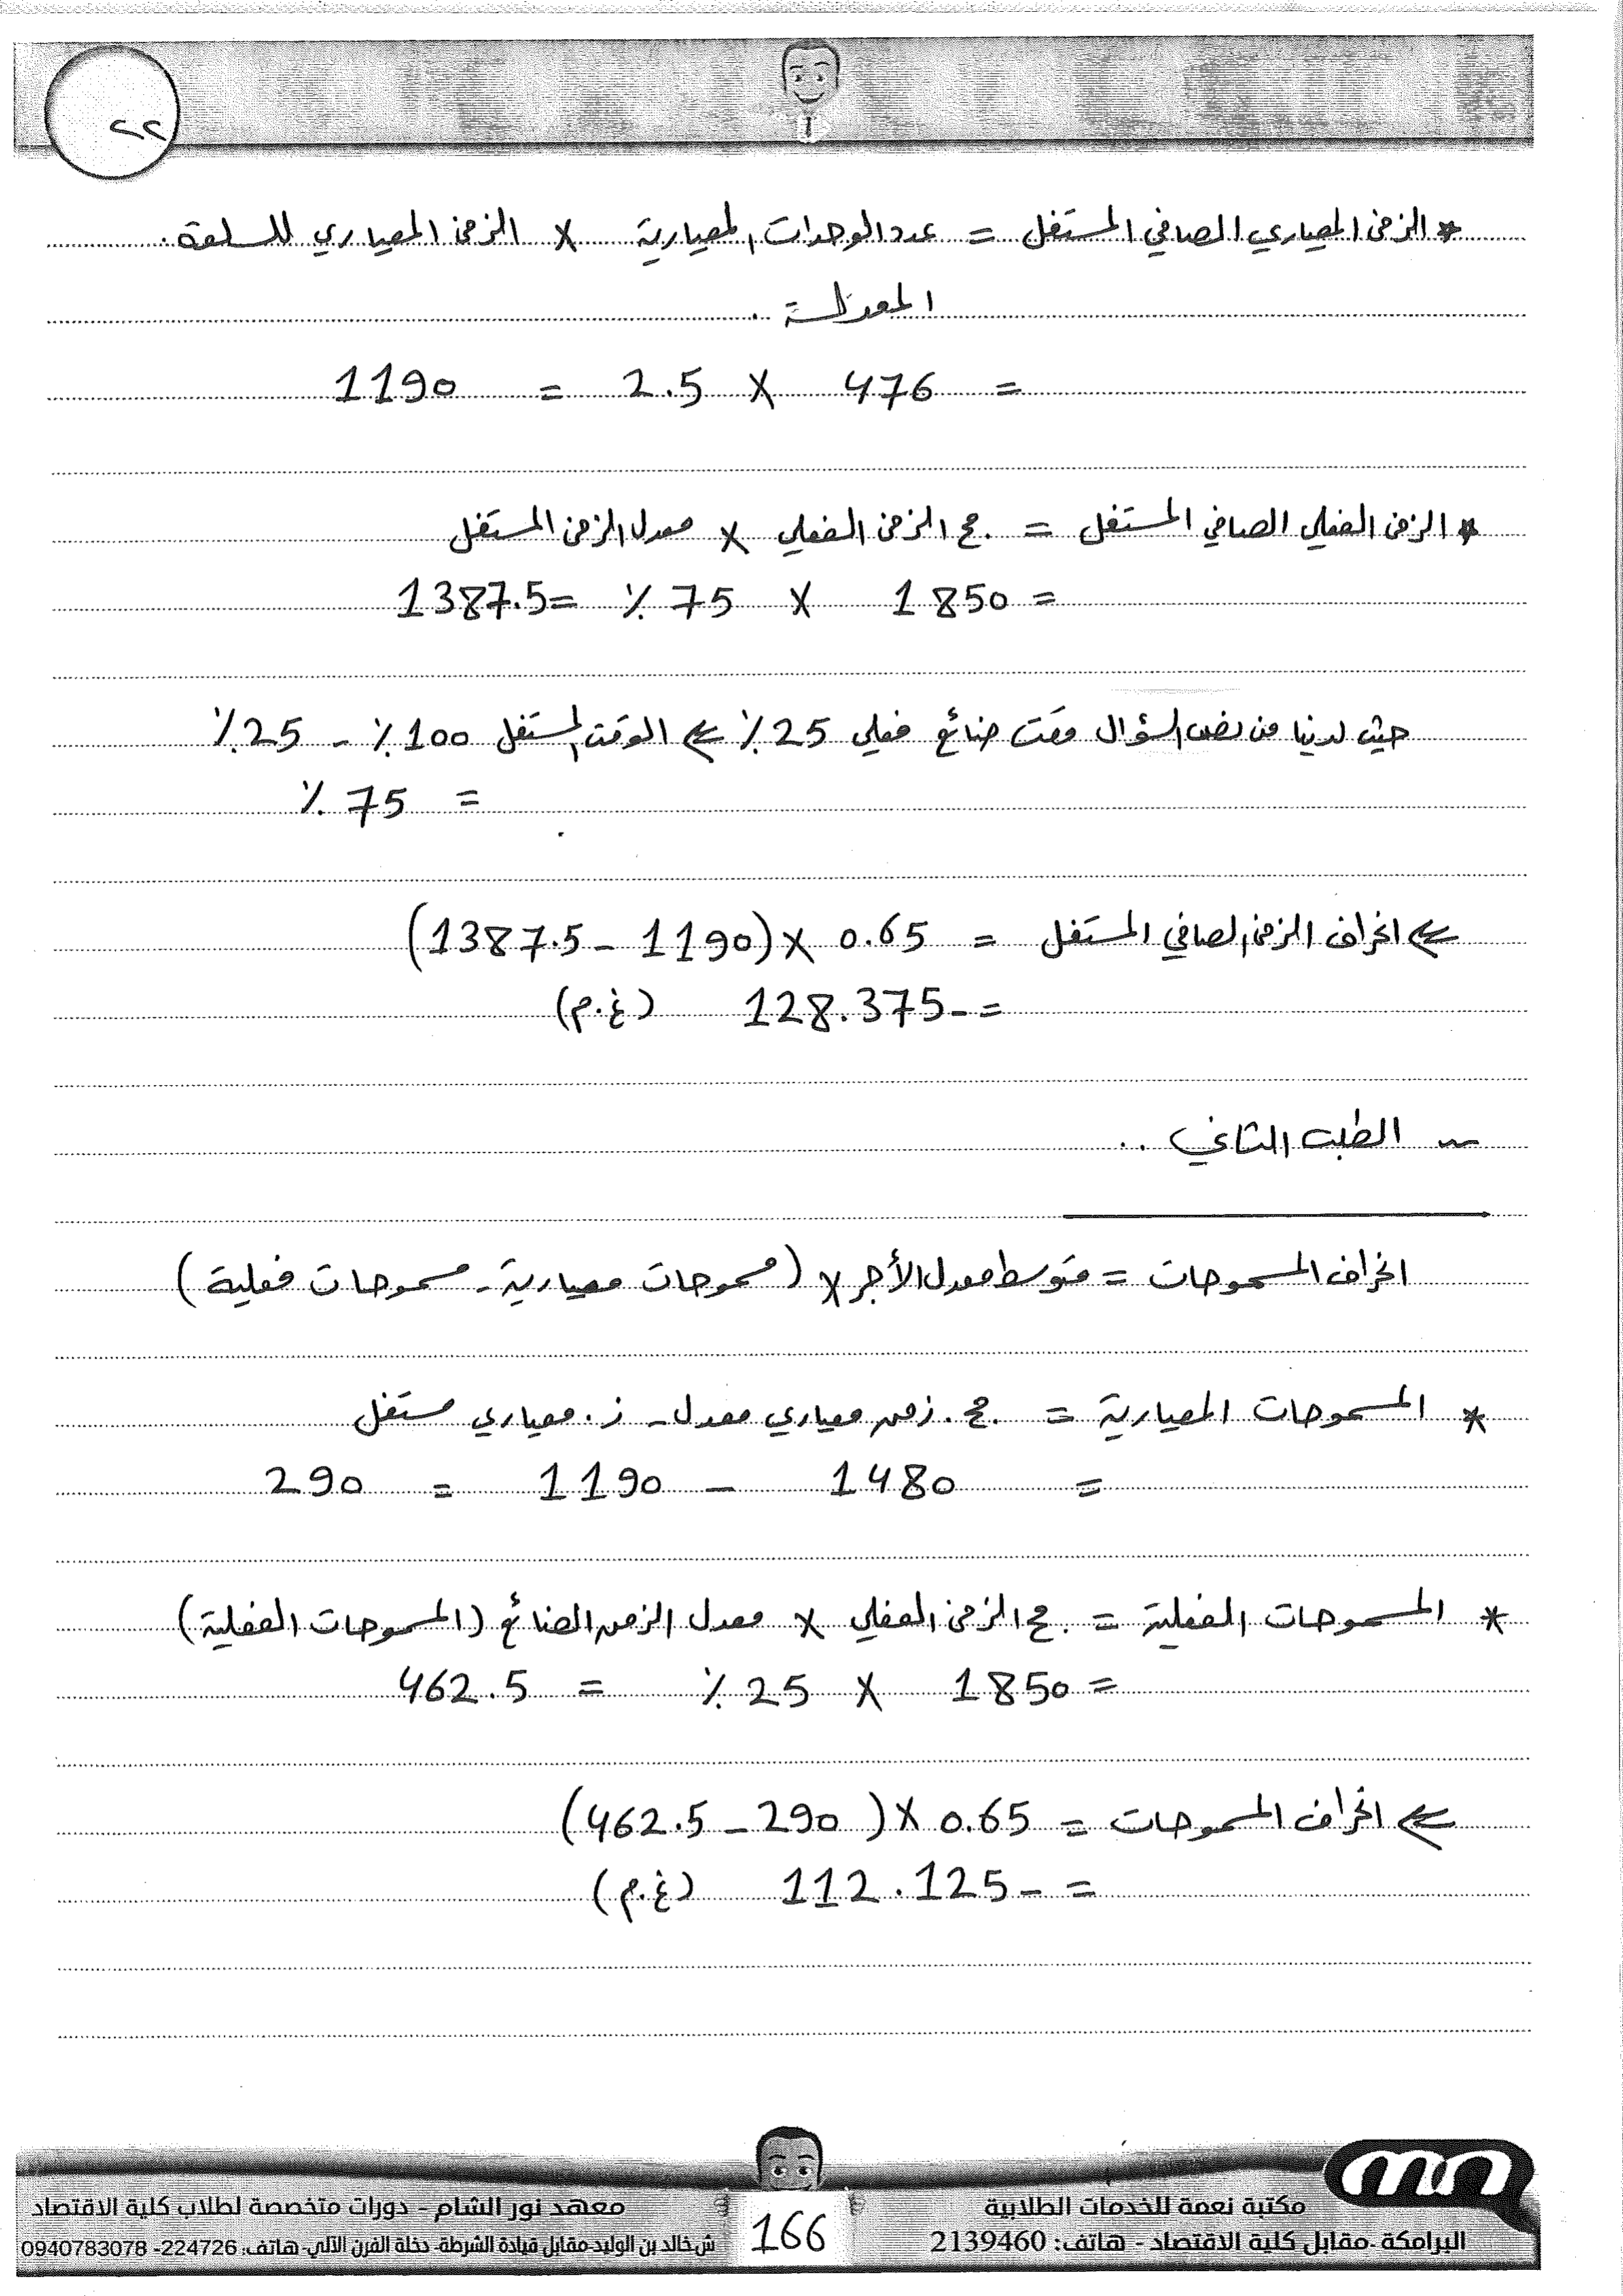 ٢٢
* الزمن المعياري الصافي المستغل = عدد الوحدات المعيارية X الزمن المعياري للسلعة.
المعدلة.
= 476 X 2.5 = 1190
* الزمن الفعلي الصافي المستغل = مج الزمن الفعلي X معدل الزمن المستغل
= 1850 X 75 ٪ = 1387.5
حيث لدينا من نص السؤال وقت ضائع فعلي 25 ٪ ⇐ الوقت المستغل 100 ٪ - 25 ٪
= 75 ٪
⇐ انحراف الزمن الصافي المستغل = 0.65 X (1190 - 1387.5)
= -128.375 (غ.م)
~ الطلب الثاني ..
انحراف المسموحات = متوسط معدل الأجر X (مسموحات معيارية - مسموحات فعلية)
* المسموحات المعيارية = مج. زمن معياري معدل - ز. معياري مستغل
= 1480 - 1190 = 290
* المسموحات الفعلية = مج الزمن الفعلي X معدل الزمن الضائع (المسموحات الفعلية)
= 1850 X 25 ٪ = 462.5
⇐ انحراف المسموحات = 0.65 X (290 - 462.5)
= -112.125 (غ.م)
مكتبة نعمة للخدمات الطلابية
البرامكة - مقابل كلية الاقتصاد - هاتف: 2139460
166
معهد نور الشام - دورات متخصصة لطلاب كلية الاقتصاد
ش خالد بن الوليد - مقابل قيادة الشرطة - دخلة الفرن الآلي - هاتف: 224726 - 0940783078